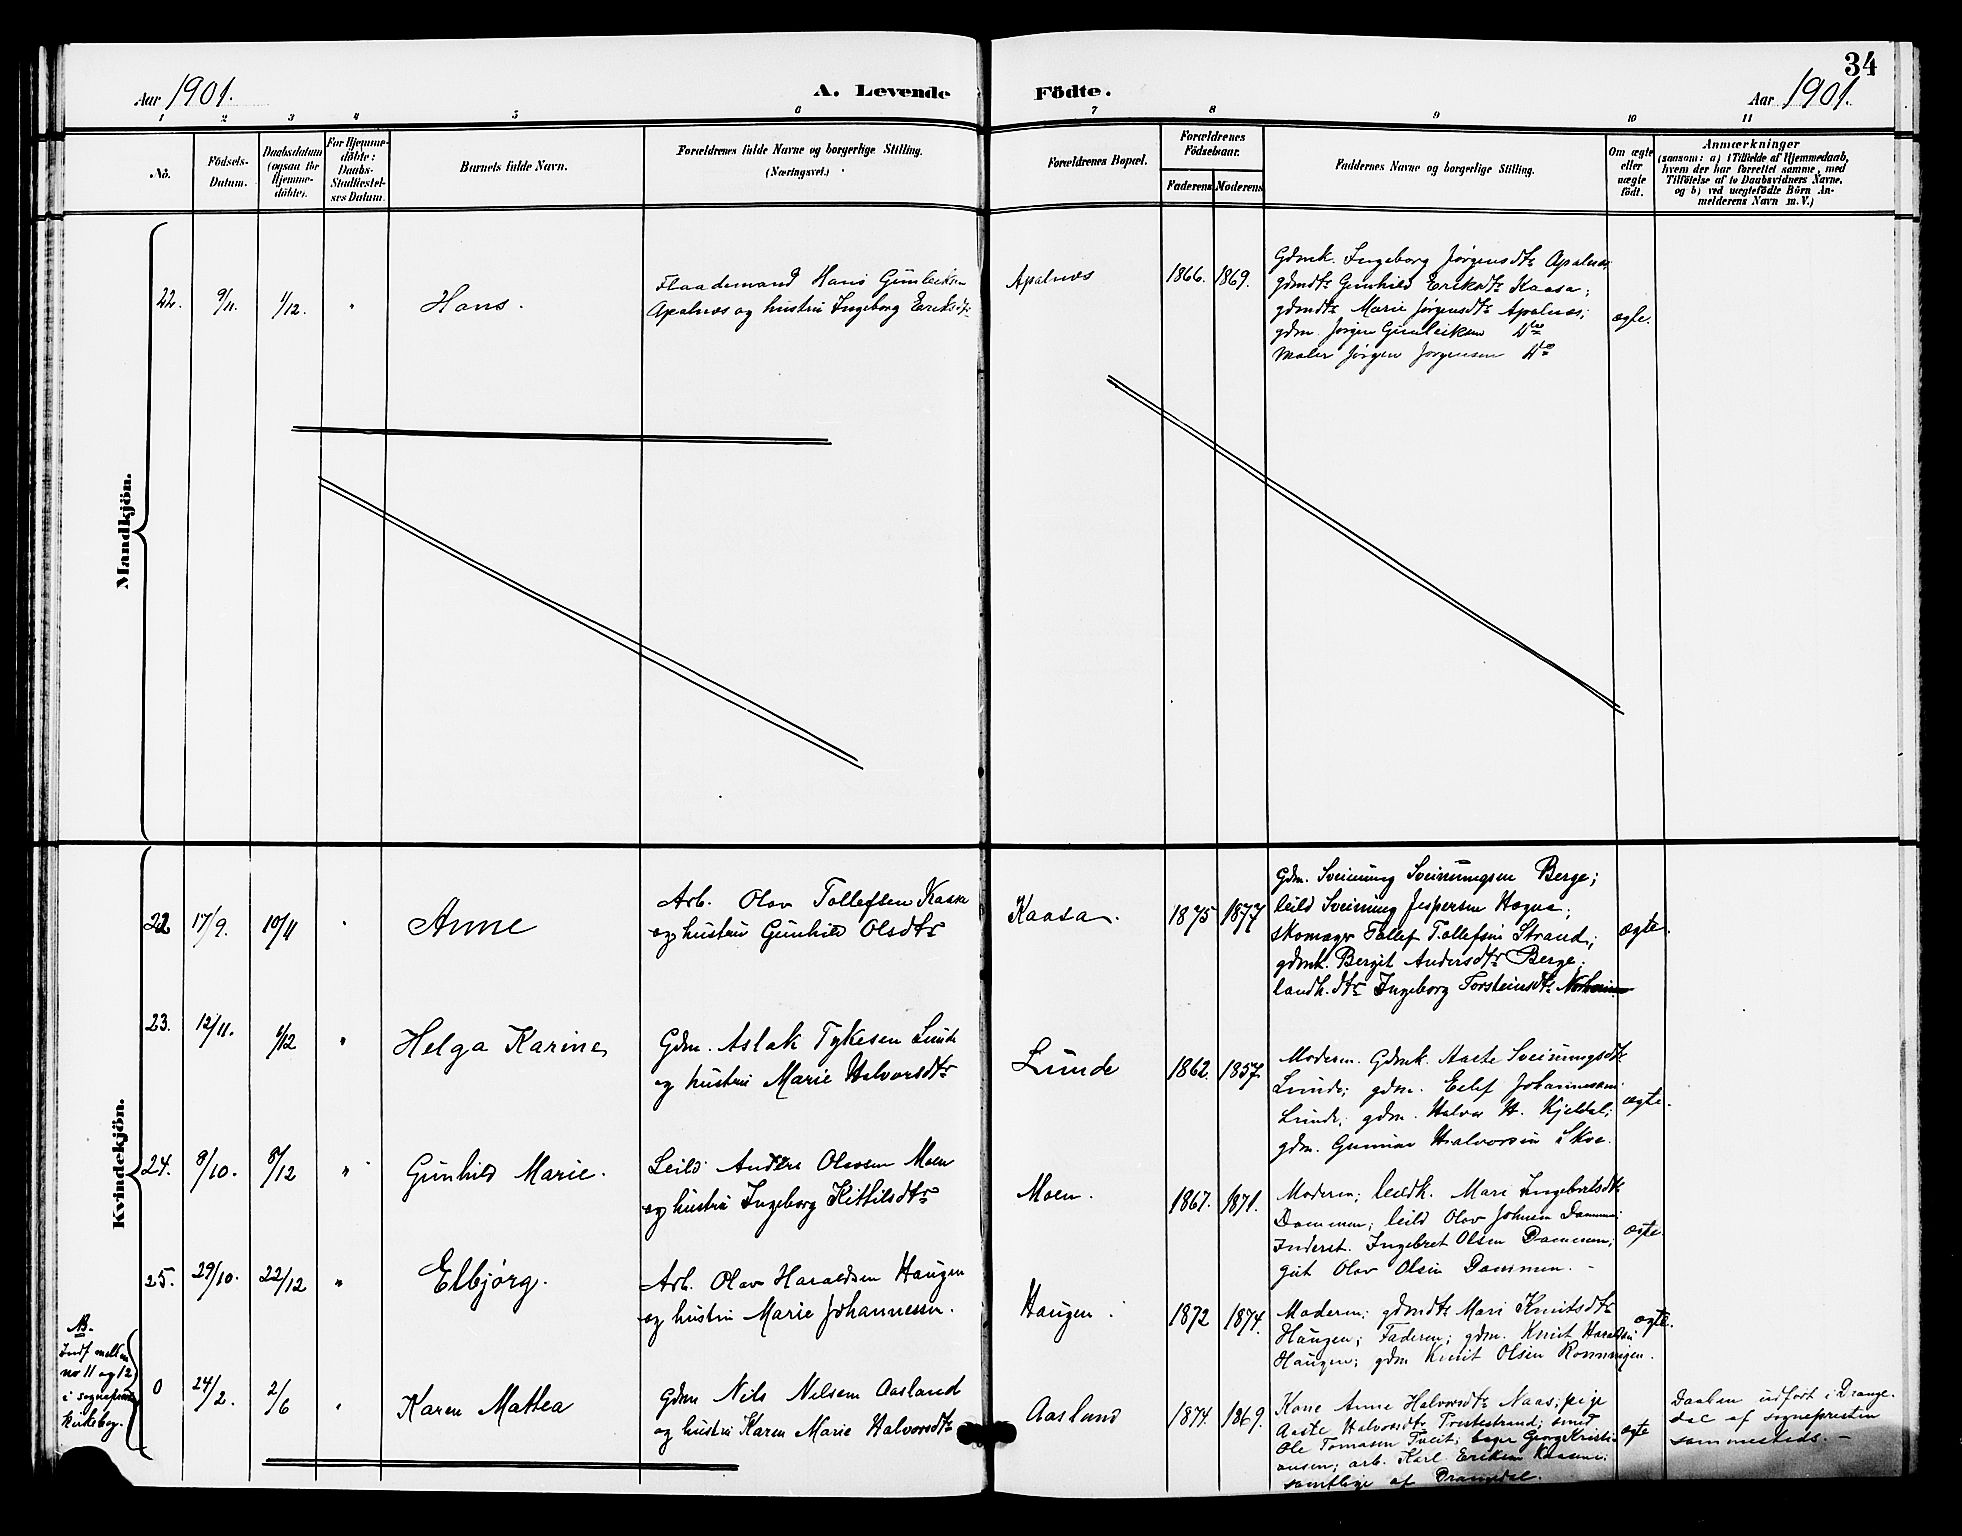 34
Aar 1901.
A. Levende Födte.
Aar 1901.
1 2 3 4 5 6 7 8 9 10 11
No.
Födsels-
Datum.
Daabsdatum
(ogsaa for
Hjemme-
döbte).
For Hjemme-
döbte:
Daabs-
Stadfæstel-
ses Datum.
Barnets fulde Navn.
Forældrenes fulde Navne og borgerlige Stilling.
(Næringsvei.)
Forældrenes Bopæl.
Forældrenes
Födselsaar.
Faderens Moderens
Faddernes Navne og borgerlige Stilling.
Om ægte
eller
uægte
født.
Anmærkninger
(saasom: a) i Tilfælde af Hjemmedaab,
hvem der har forrettet samme, med
Tilføielse af to Daabsvidners Navne,
og b) ved uægtefødte Börn An-
melderens Navn m. V.)
Mandkjön.
22. 9/11. 1/12. " Hans.
Flaademand Hans Gunleiksen
Apalnæs og hustru Ingeborg Eriksdtr
Apalnæs 1866. 1869.
Gdmk. Ingeborg Jørgensdtr Apalnæs
gdmdtr Gunhild Eriksdtr Kaasa;
gdmdtr Marie Jørgensdtr Apalnæs;
gdm. Jørgen Gunleiksen Do
Maler Jørgen Jørgensen Do
ægte.
Kvindekjön.
22 17/9. 10/11 " Anne
Arb. Olav Tollefsen Kaasa
og hustru Gunhild Olsdtr
Kaasa. 1875 1877
Gdm. Sveinung Sveinungsen Berge;
leild Sveinung Jespersen Hogna;
skomager Tollef Tollefsen Strand;
gdmk. Bergit Andersdtr Berge;
landh.dtr Ingeborg Torsteinsdtr
ægte.
23. 12/11. 1/12 " Helga Karine
Gdm. Aslak Tykesen Lunde
og hustru Marie Halvorsdtr
Lunde 1862. 1857.
Moderen. Gdmk. Aaste Sveinungsdtr
Lunde; gdm. Eelef Johannessen
Lunde; gdm. Halvor H. Kjeldal;
gdm. Gunnar Halvorsen Skoe.
ægte.
24. 8/10. 8/12 " Gunhild Marie.
Leild. Anders Olavsen Moen
og hustru Ingeborg Kittilsdtr
Moen. 1867. 1871.
Moderen; leildk. Mari Ingebretsdtr
Dammen; leild Olav Johnsen Dammen;
Inderst. Ingebret Olsen Dammen;
gut Olav Olsen Dammen.
ægte.
25. 29/10. 22/12 " Elbjørg.
Arb. Olav Haraldsen Haugen
og hustru Marie Johannessen.
Haugen 1872 1874.
Moderen; gdmdtr Mari Knutsdtr
Haugen; Faderen; gdm. Knut Haraldsen
Haugen; gdm Knut Olsen Rønningen.
ægte.
NB.
Indf mellem
no 11 og 12
i sogneprest
kirkebog.
0 24/2. 2/6 " Karen Mathea
Gdm Nils Nilsen Aasland
og hustru Karen Marie Halvorsdtr
Aaslund 1874. 1869.
Kone Anne Halvorsdtr Naas; pige
Aaste Halvorsdtr Trostestrand; smed
Ole Tomasen Tveit; bager Georg Kristi-
ansen; arb. Karl Eriksen Kaasene;
samtlige af Drangedal.
ægte
Daaben udført i Drange-
dal af sognepresten
sammesteds.